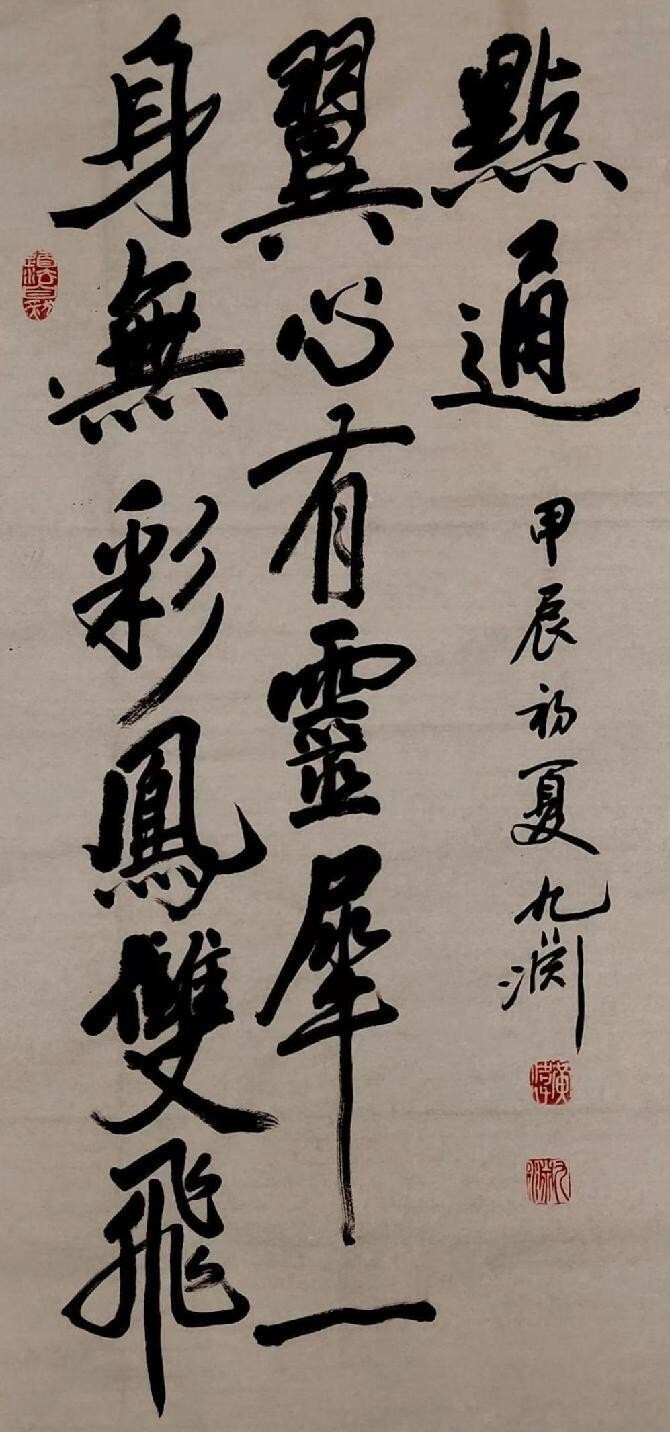 身無彩鳳雙飛
翼心有靈犀一
點通
甲辰初夏九淵